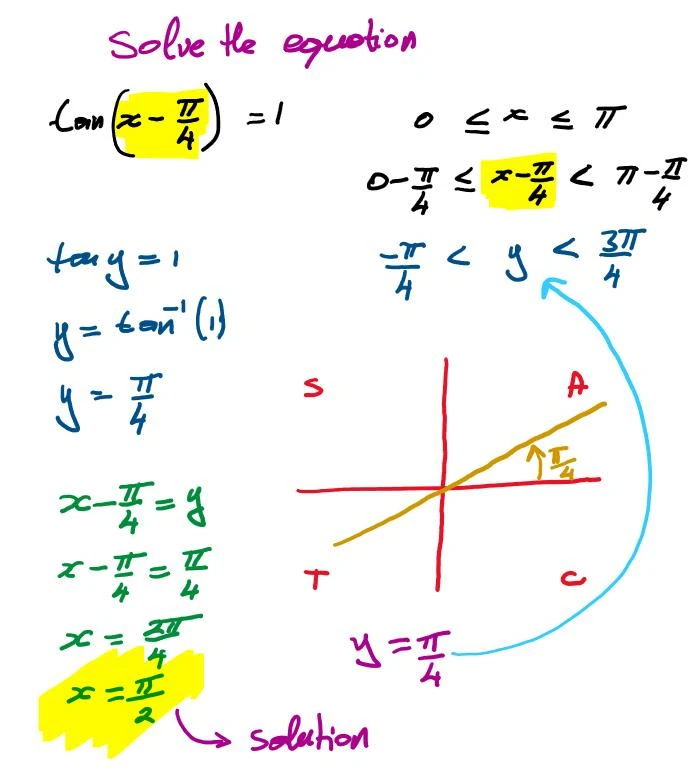 Solve the equation
tan(x - π/4) = 1
0 ≤ x ≤ π
0 - π/4 ≤ x - π/4 < π - π/4
-π/4 < y < 3π/4
tan y = 1
y = tan⁻¹(1)
y = π/4
S A
π/4
T C
y = π/4
x - π/4 = y
x - π/4 = π/4
x = 2π/4
x = π/2
solution